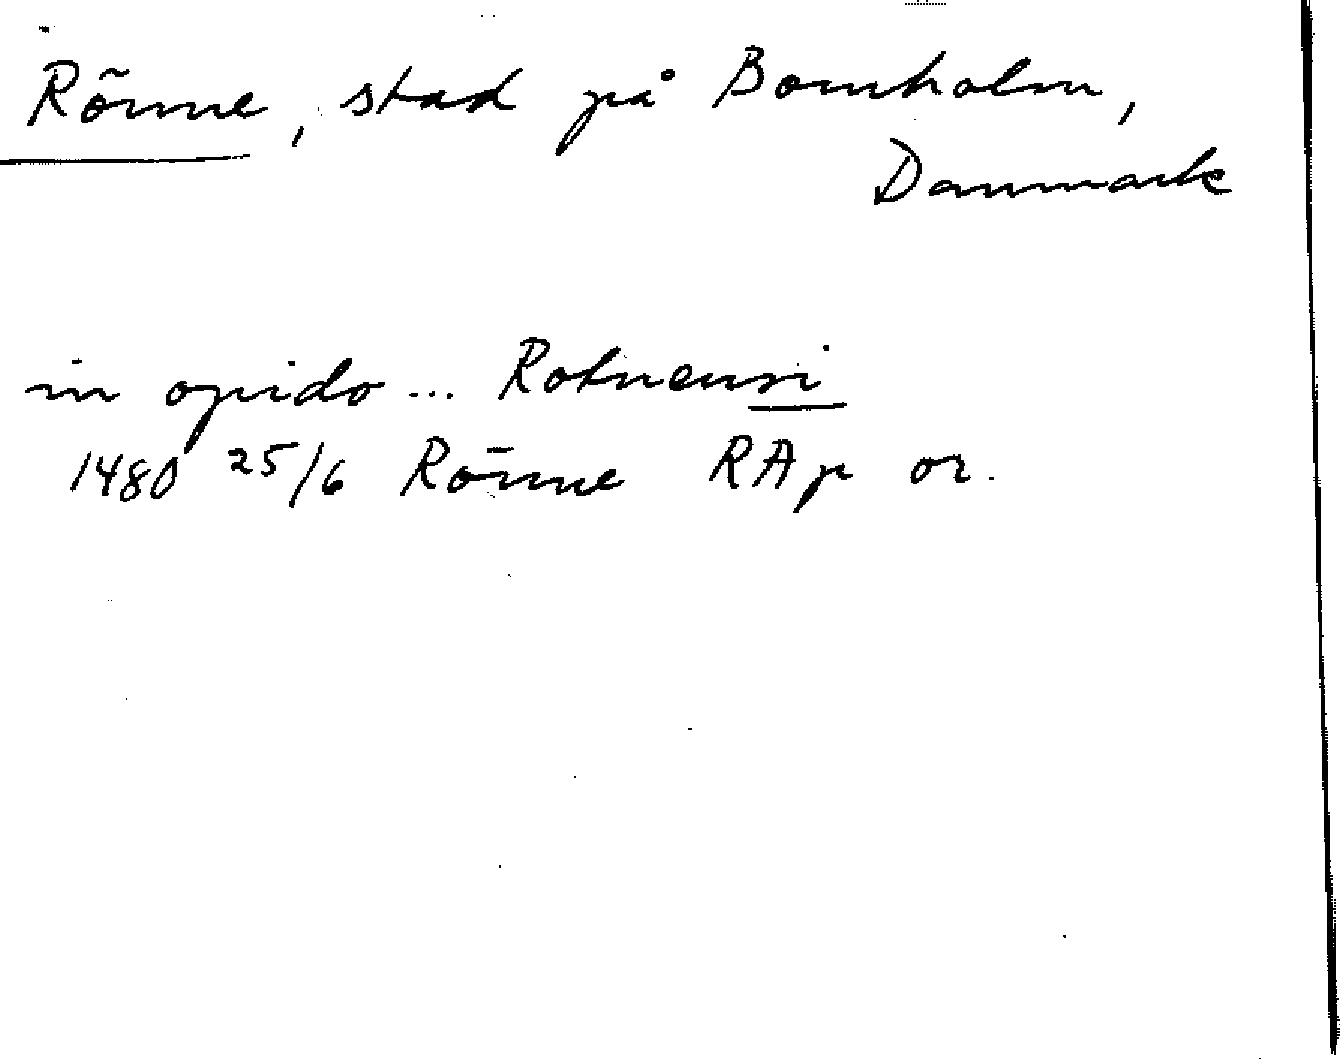 Rönne, stad på Bornholm,
Danmark
in opido... Rotnensi
1480 25/6 Rönne RAp or.